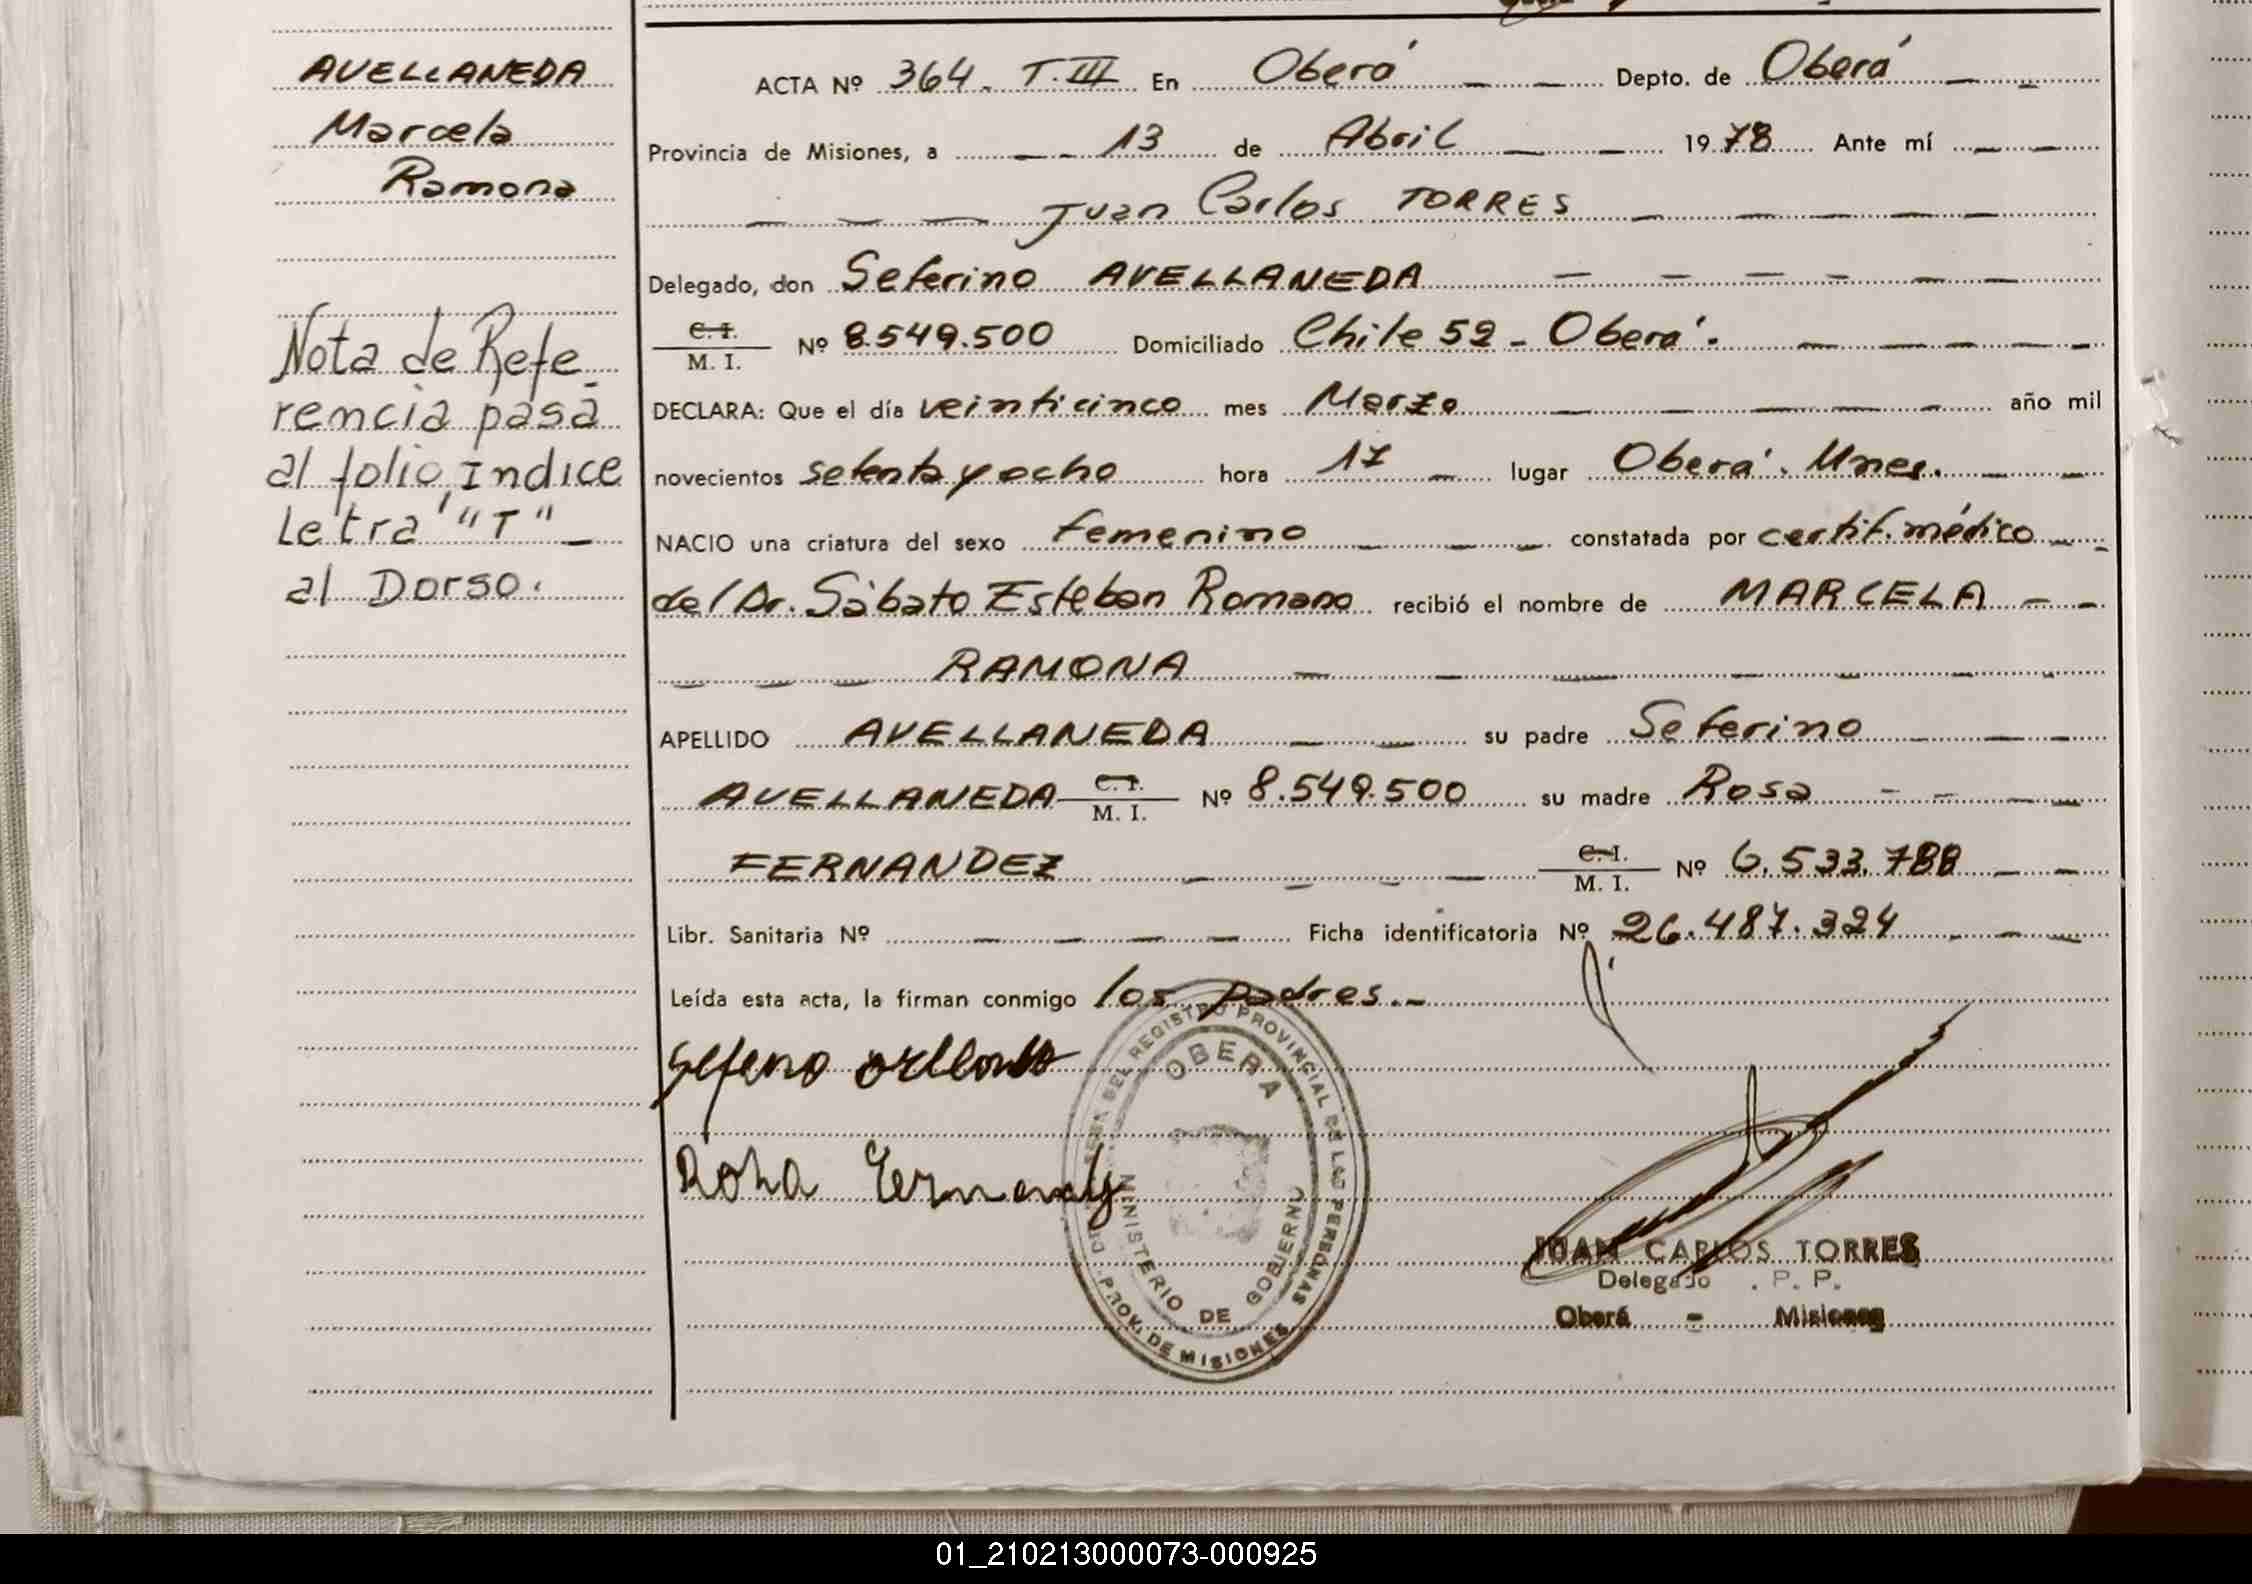 AVELLANEDA
Marcela
Ramona
Nota de Refe_
rencia pasa
al folio, Indice
Letra "T" _
al Dorso.
ACTA Nº 364. T. III En Oberá Depto. de Oberá
Provincia de Misiones, a 13 de Abril 1978 Ante mí
Juan Carlos TORRES
Delegado, don Seferino AVELLANEDA
C. I.
M. I. Nº 8.549.500 Domiciliado Chile 52 - Oberá.
DECLARA: Que el día veinticinco mes Marzo año mil
novecientos setenta y ocho hora 17 lugar Oberá. Mnes.
NACIO una criatura del sexo femenino constatada por certif. médico
del Dr. Sábato Esteban Romano recibió el nombre de MARCELA
RAMONA
APELLIDO AVELLANEDA su padre Seferino
AVELLANEDA C. I. M. I. Nº 8.549.500 su madre Rosa
FERNANDEZ C. I. M. I. Nº 6.533.788
Libr. Sanitaria Nº Ficha identificatoria Nº 26.487.324
Leída esta acta, la firman conmigo los padres.-
Rosa Fernandez
DEL REGISTRO PROVINCIAL DE LAS PERSONAS
OBERA
MINISTERIO DE GOBIERNO
PROV. DE MISIONES
JUAN CARLOS TORRES
Delegado . P. P.
Oberá - Misiones
01_210213000073-000925